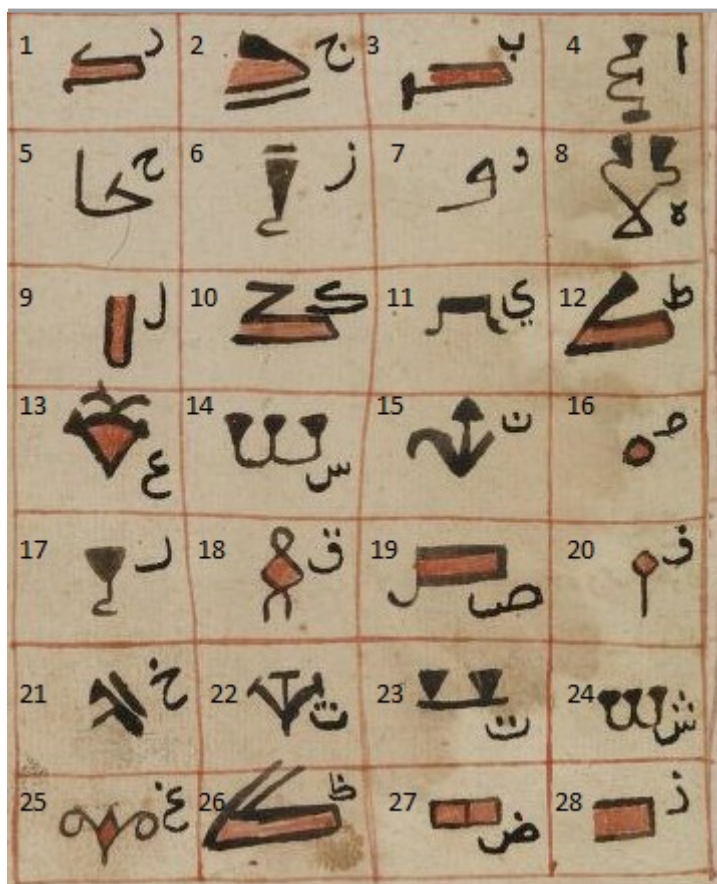 1 د 2 ج 3 ب 4 ا
5 ح 6 ز 7 و 8 ه
9 ل 10 ك 11 ي 12 ط
13 ع 14 س 15 ن 16 م
17 ر 18 ق 19 ص 20 ف
21 خ 22 ث 23 ت 24 ش
25 غ 26 ظ 27 ض 28 ذ